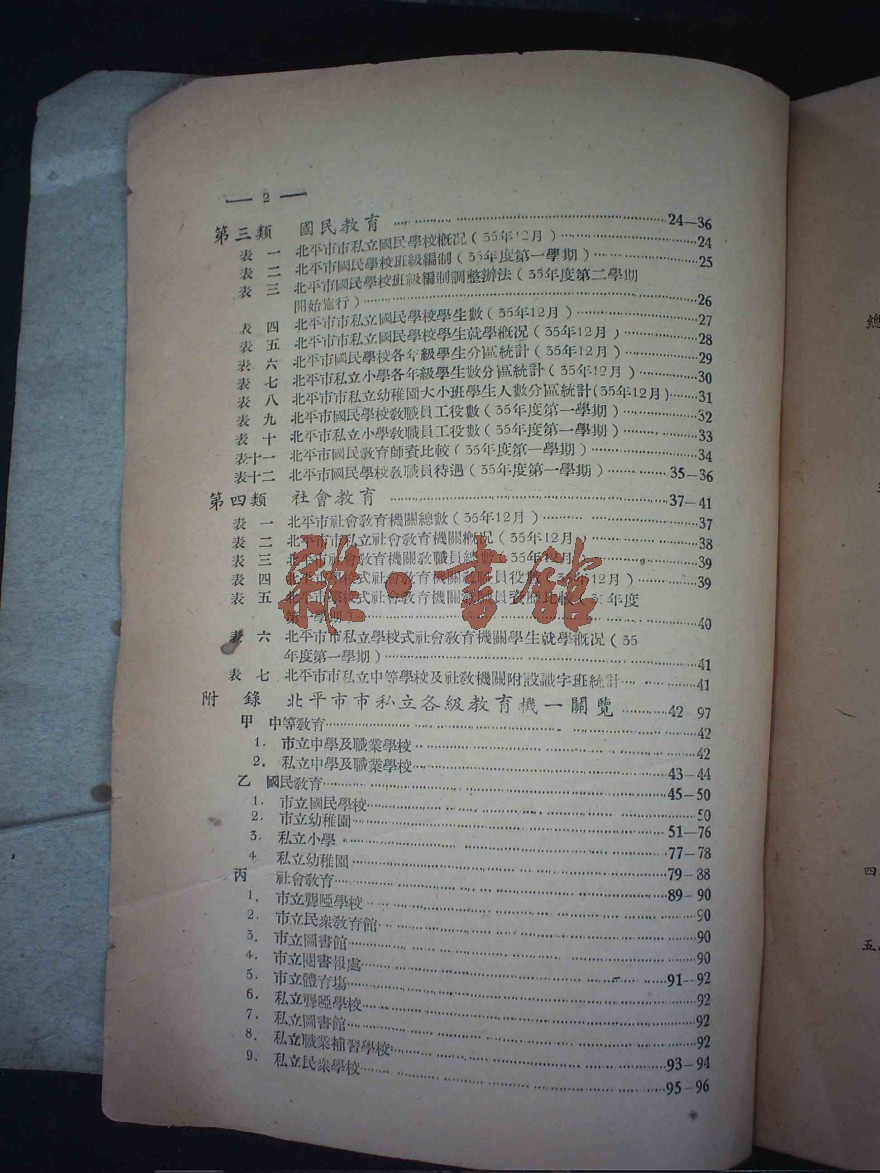 — 2 —
第三類 國民教育 24—36
表一 北平市市私立國民學校概况(35年12月) 24
表二 北平市國民學校班級編制(35年度第一學期) 25
表三 北平市國民學校班級編制調整辦法(35年度第二學期
開始施行) 26
表四 北平市市私立國民學校學生數(35年12月) 27
表五 北平市市私立國民學校學生就學概况(35年12月) 28
表六 北平市國民學校各年級學生分區統計(35年12月) 29
表七 北平市私立小學各年級學生數分區統計(35年12月) 30
表八 北平市市私立幼稚園大小班學生人數分區統計(35年12月) 31
表九 北平市國民學校教職員工役數(35年度第一學期) 32
表十 北平市私立小學教職員工役數(35年度第一學期) 33
表十一 北平市國民教育師資比較(35年度第一學期) 34
表十二 北平市國民學校教職員待遇(35年度第一學期) 35—36
第四類 社會教育 37—41
表一 北平市社會教育機關總數(35年12月) 37
表二 北平市市私立社會教育機關概况(35年12月) 38
表三 北平市社會教育機關教職員總數(35年12月) 39
表四 北平市學校式社會教育機關教職員役數(35年12月) 39
表五 北平市學校式社會教育機關教職員資歷比較(35年度
第一學期) 40
表六 北平市市私立學校式社會教育機關學生就學概况(35
年度第一學期) 41
表七 北平市市私立中等學校及社教機關附設識字班統計 41
附錄 北平市市私立各級教育機一關覽 42—97
甲 中等教育 42
1. 市立中學及職業學校 42
2. 私立中學及職業學校 43—44
乙 國民教育 45—50
1. 市立國民學校 50
2. 市立幼稚園 51—76
3. 私立小學 77—78
4. 私立幼稚園 79—88
丙 社會教育 89—90
1. 市立聾啞學校 90
2. 市立民衆教育館 90
3. 市立圖書館 90
4. 市立閱書報處 91—92
5. 市立體育場 92
6. 私立聾啞學校 92
7. 私立圖書館 92
8. 私立職業補習學校 93—94
9. 私立民衆學校 95—96
雜·書館
總
四
五